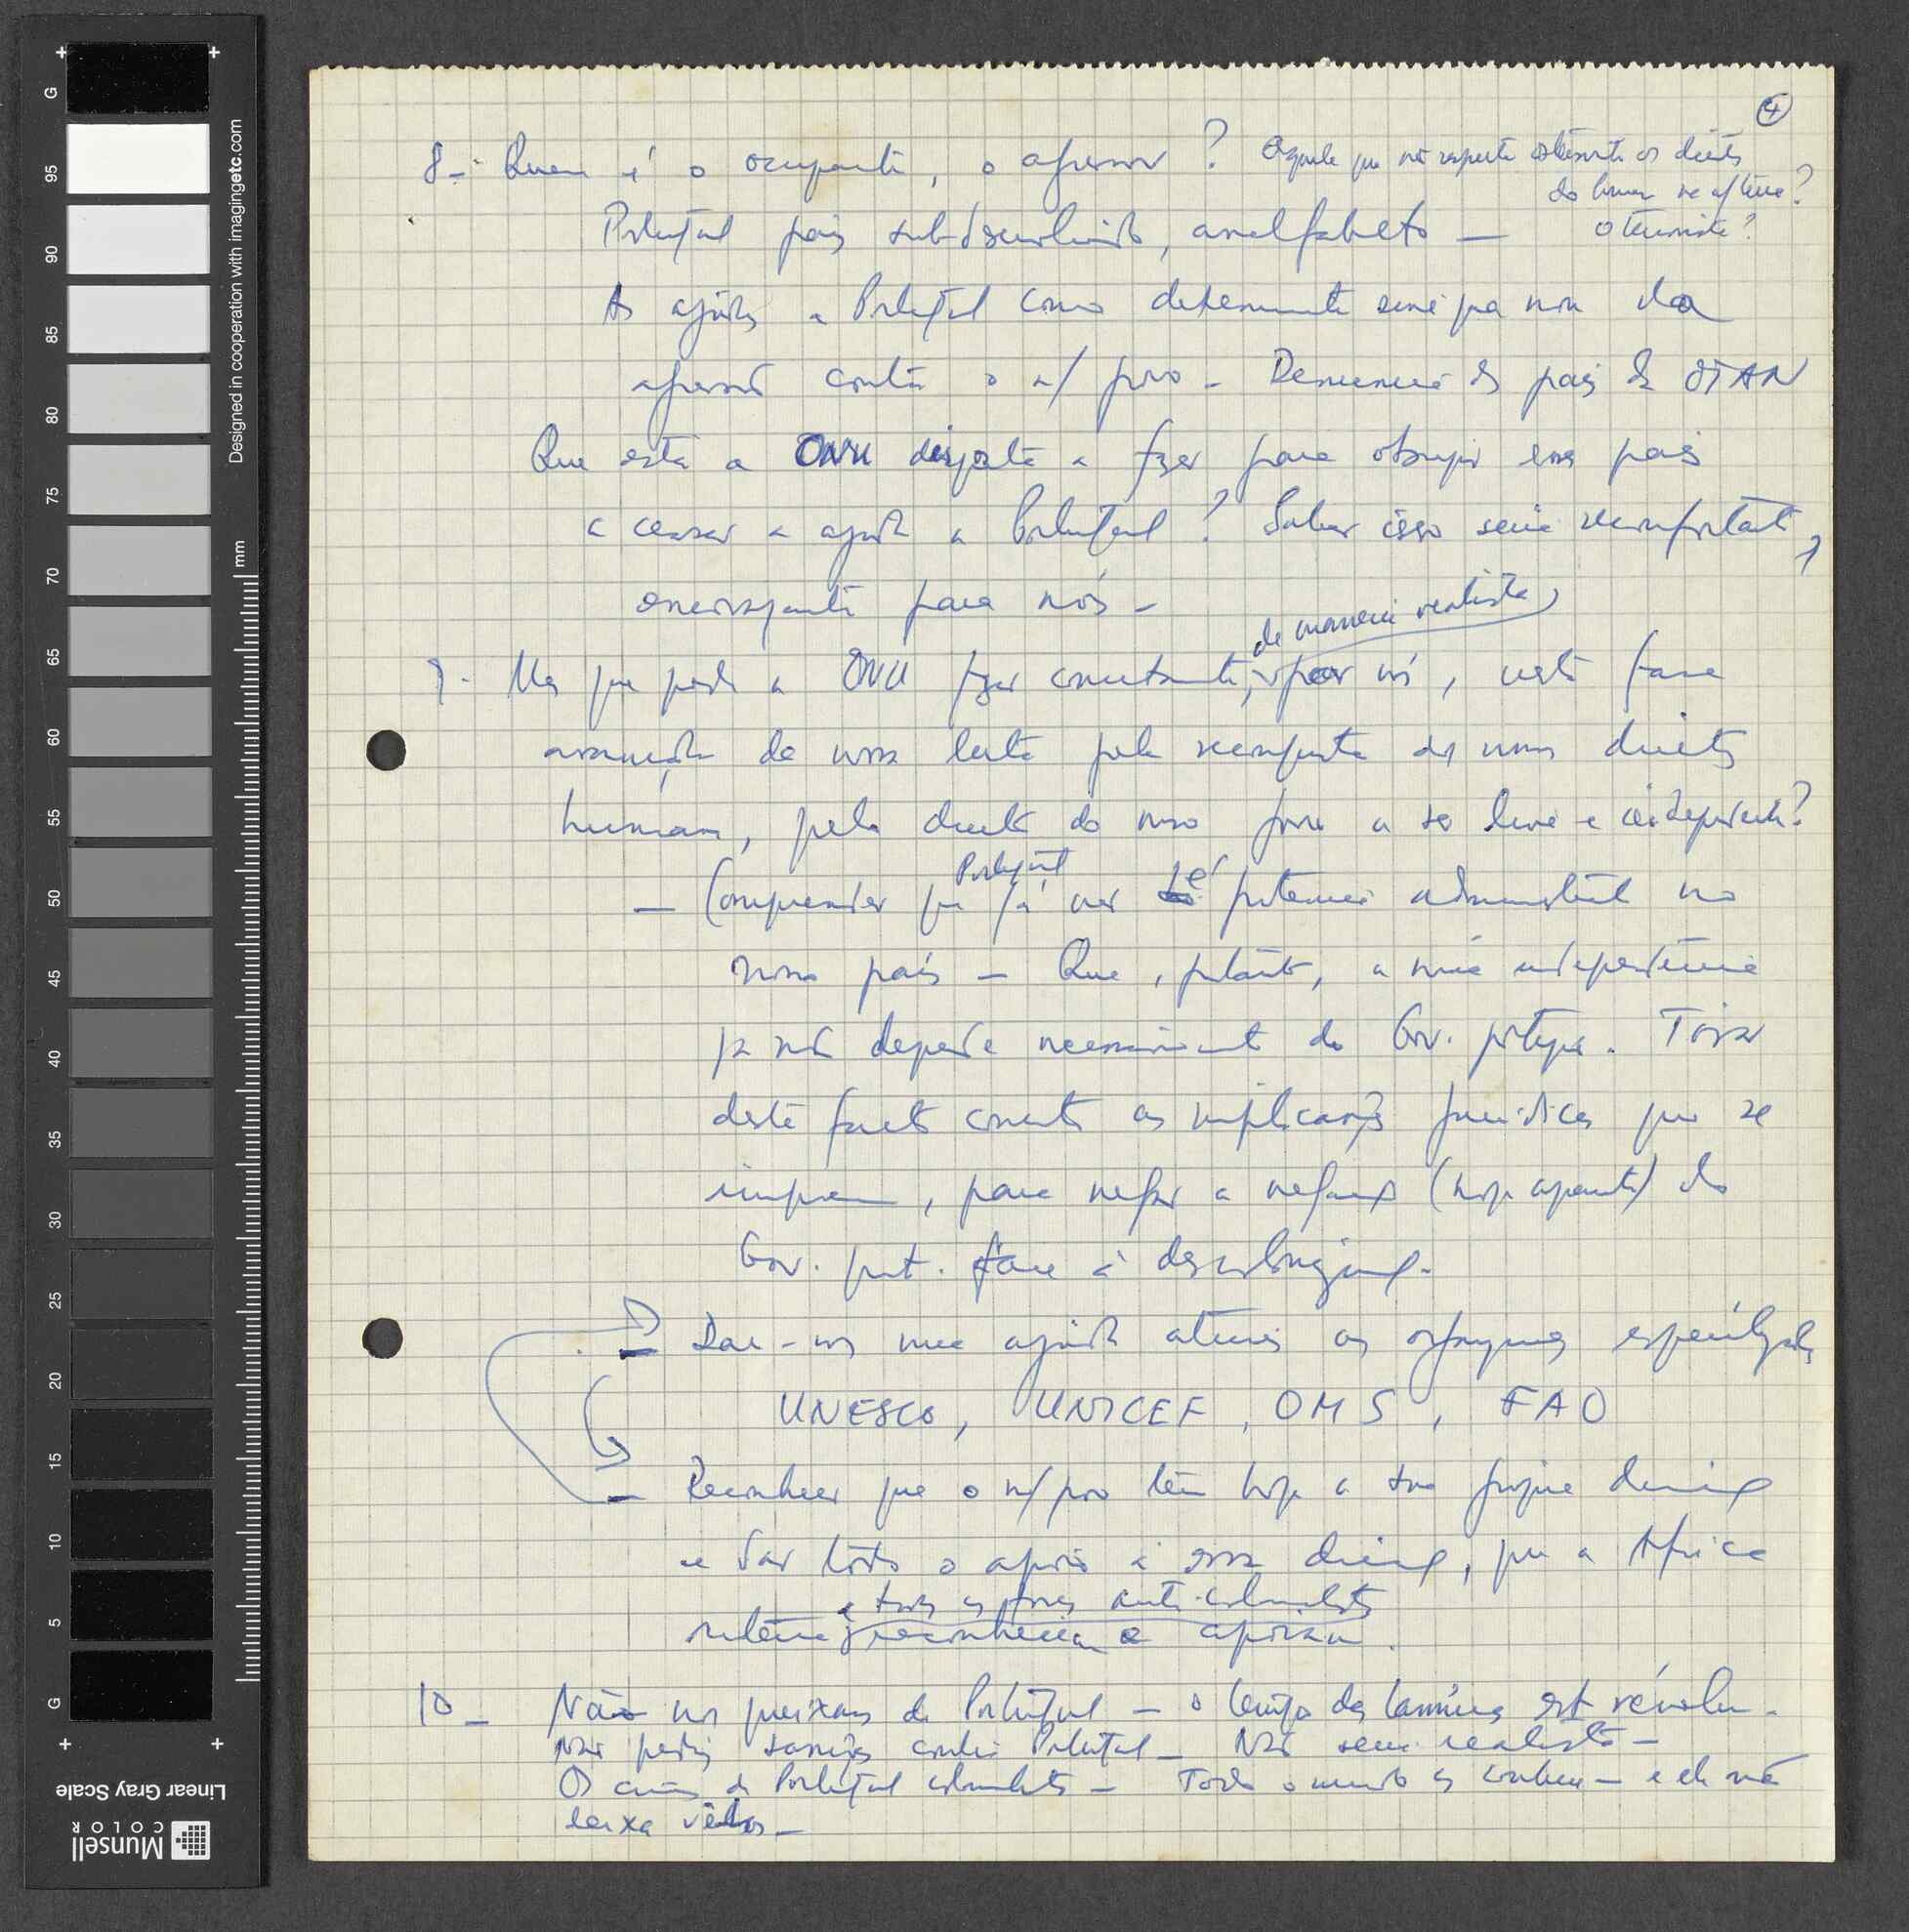 4
8- Quem é o ocupante, o agressor? Aquele que não respeita os direitos
do homem
Portugal país subdesenvolvido, analfabeto — o terrorista?
As ajudas a Portugal como determinante sine qua non da
agressão contra o n/ povo - Denúncia dos países da OTAN
Que está a ONU disposta a fazer para obrigar esses países
a cessar a ajuda a Portugal? Saber isso seria reconfortante,
encorajante para nós -
de maneira realista,
9- Mas que pode a ONU fazer concretamente, por nós, nesta fase
avançada da nossa luta pela reconquista dos nossos direitos
humanos, pelo direito do nosso povo a ser livre e independente?
Portugal
— Compreender que já não é potência administrante no
nosso país — Que, portanto, a nossa independência
já não depende necessariamente do Gov. português. Tirar
deste facto concreto as implicações jurídicas que se
impõem, para negar a negação (hoje aparente) do
Gov. port. face à descolonização.
— Dar-nos uma ajuda através os organismos especializados
UNESCO, UNICEF, OMS, FAO
— Reconhecer que o n/ povo tem hoje a sua própria direcção
e dar todo o apoio a essa direcção, que a Africa
e todas as forças anti-colonialistas
reconhecem e apoiam.
10 - Não nos queixamos de Portugal — o tempo das lamúrias est révolu.
Não pedir sanções contra Portugal — Não seria realista —
Os crimes de Portugal colonialista — Todo o mundo os conhece — e ele não
deixa vê-los —
Designed in cooperation with imagingetc.com
mm
G
95
90
85
80
75
70
65
60
55
50
45
40
35
30
25
20
15
10
5
G
Linear Gray Scale
Munsell
COLOR